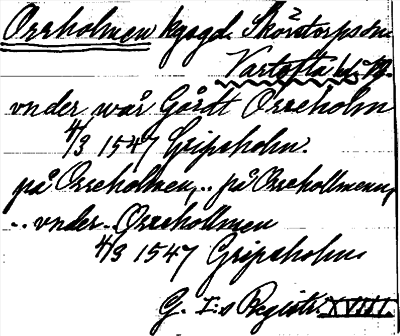 Orrholmen kgsgd. Skörstorps sn.
Vartofta hd. Vg.
vnder wår Gårdt Orreholm
4/3 1547 Gripsholm.
på Orreholmen,.. på Orrehollmenn,
.. vnder Orrehollmen
4/3 1547 Gripsholm
G. I:s Registr. XVIII.